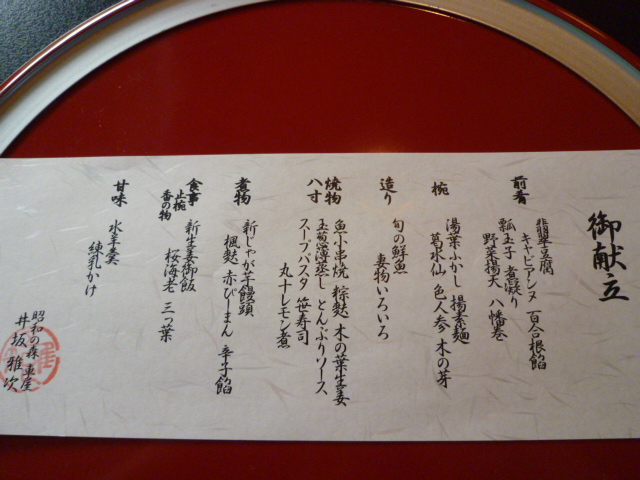 御献立
前肴
翡翠豆腐
キャビアンヌ 百合根餡
瓢玉子 煮凝り
野菜揚天 八幡巻
椀
湯葉ふかし 揚素麺
葛水仙 色人参 木の芽
造り
旬の鮮魚
妻物いろいろ
焼物
八寸
魚小串焼 粽麩 木の葉生姜
玉葱薄蒸し とんぶりソース
スープパスタ 笹寿司
丸十レモン煮
煮物
新じゃが芋饅頭
楓麩 赤ぴーまん 辛子餡
食事
止椀
香の物
新生姜御飯
桜海老 三つ葉
甘味
水羊羹
練乳かけ
昭和の森 車屋
井坂 雅次